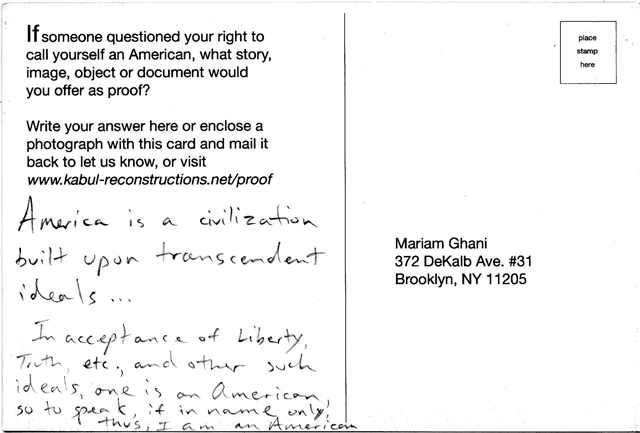 If someone questioned your right to
call yourself an American, what story,
image, object or document would
you offer as proof?
Write your answer here or enclose a
photograph with this card and mail it
back to let us know, or visit
www.kabul-reconstructions.net/proof
America is a civilization
built upon transcendent
ideals...
In acceptance of Liberty,
Truth, etc., and other such
ideals, one is an American,
so to speak, if in name only;
thus, I am an American
place
stamp
here
Mariam Ghani
372 DeKalb Ave. #31
Brooklyn, NY 11205